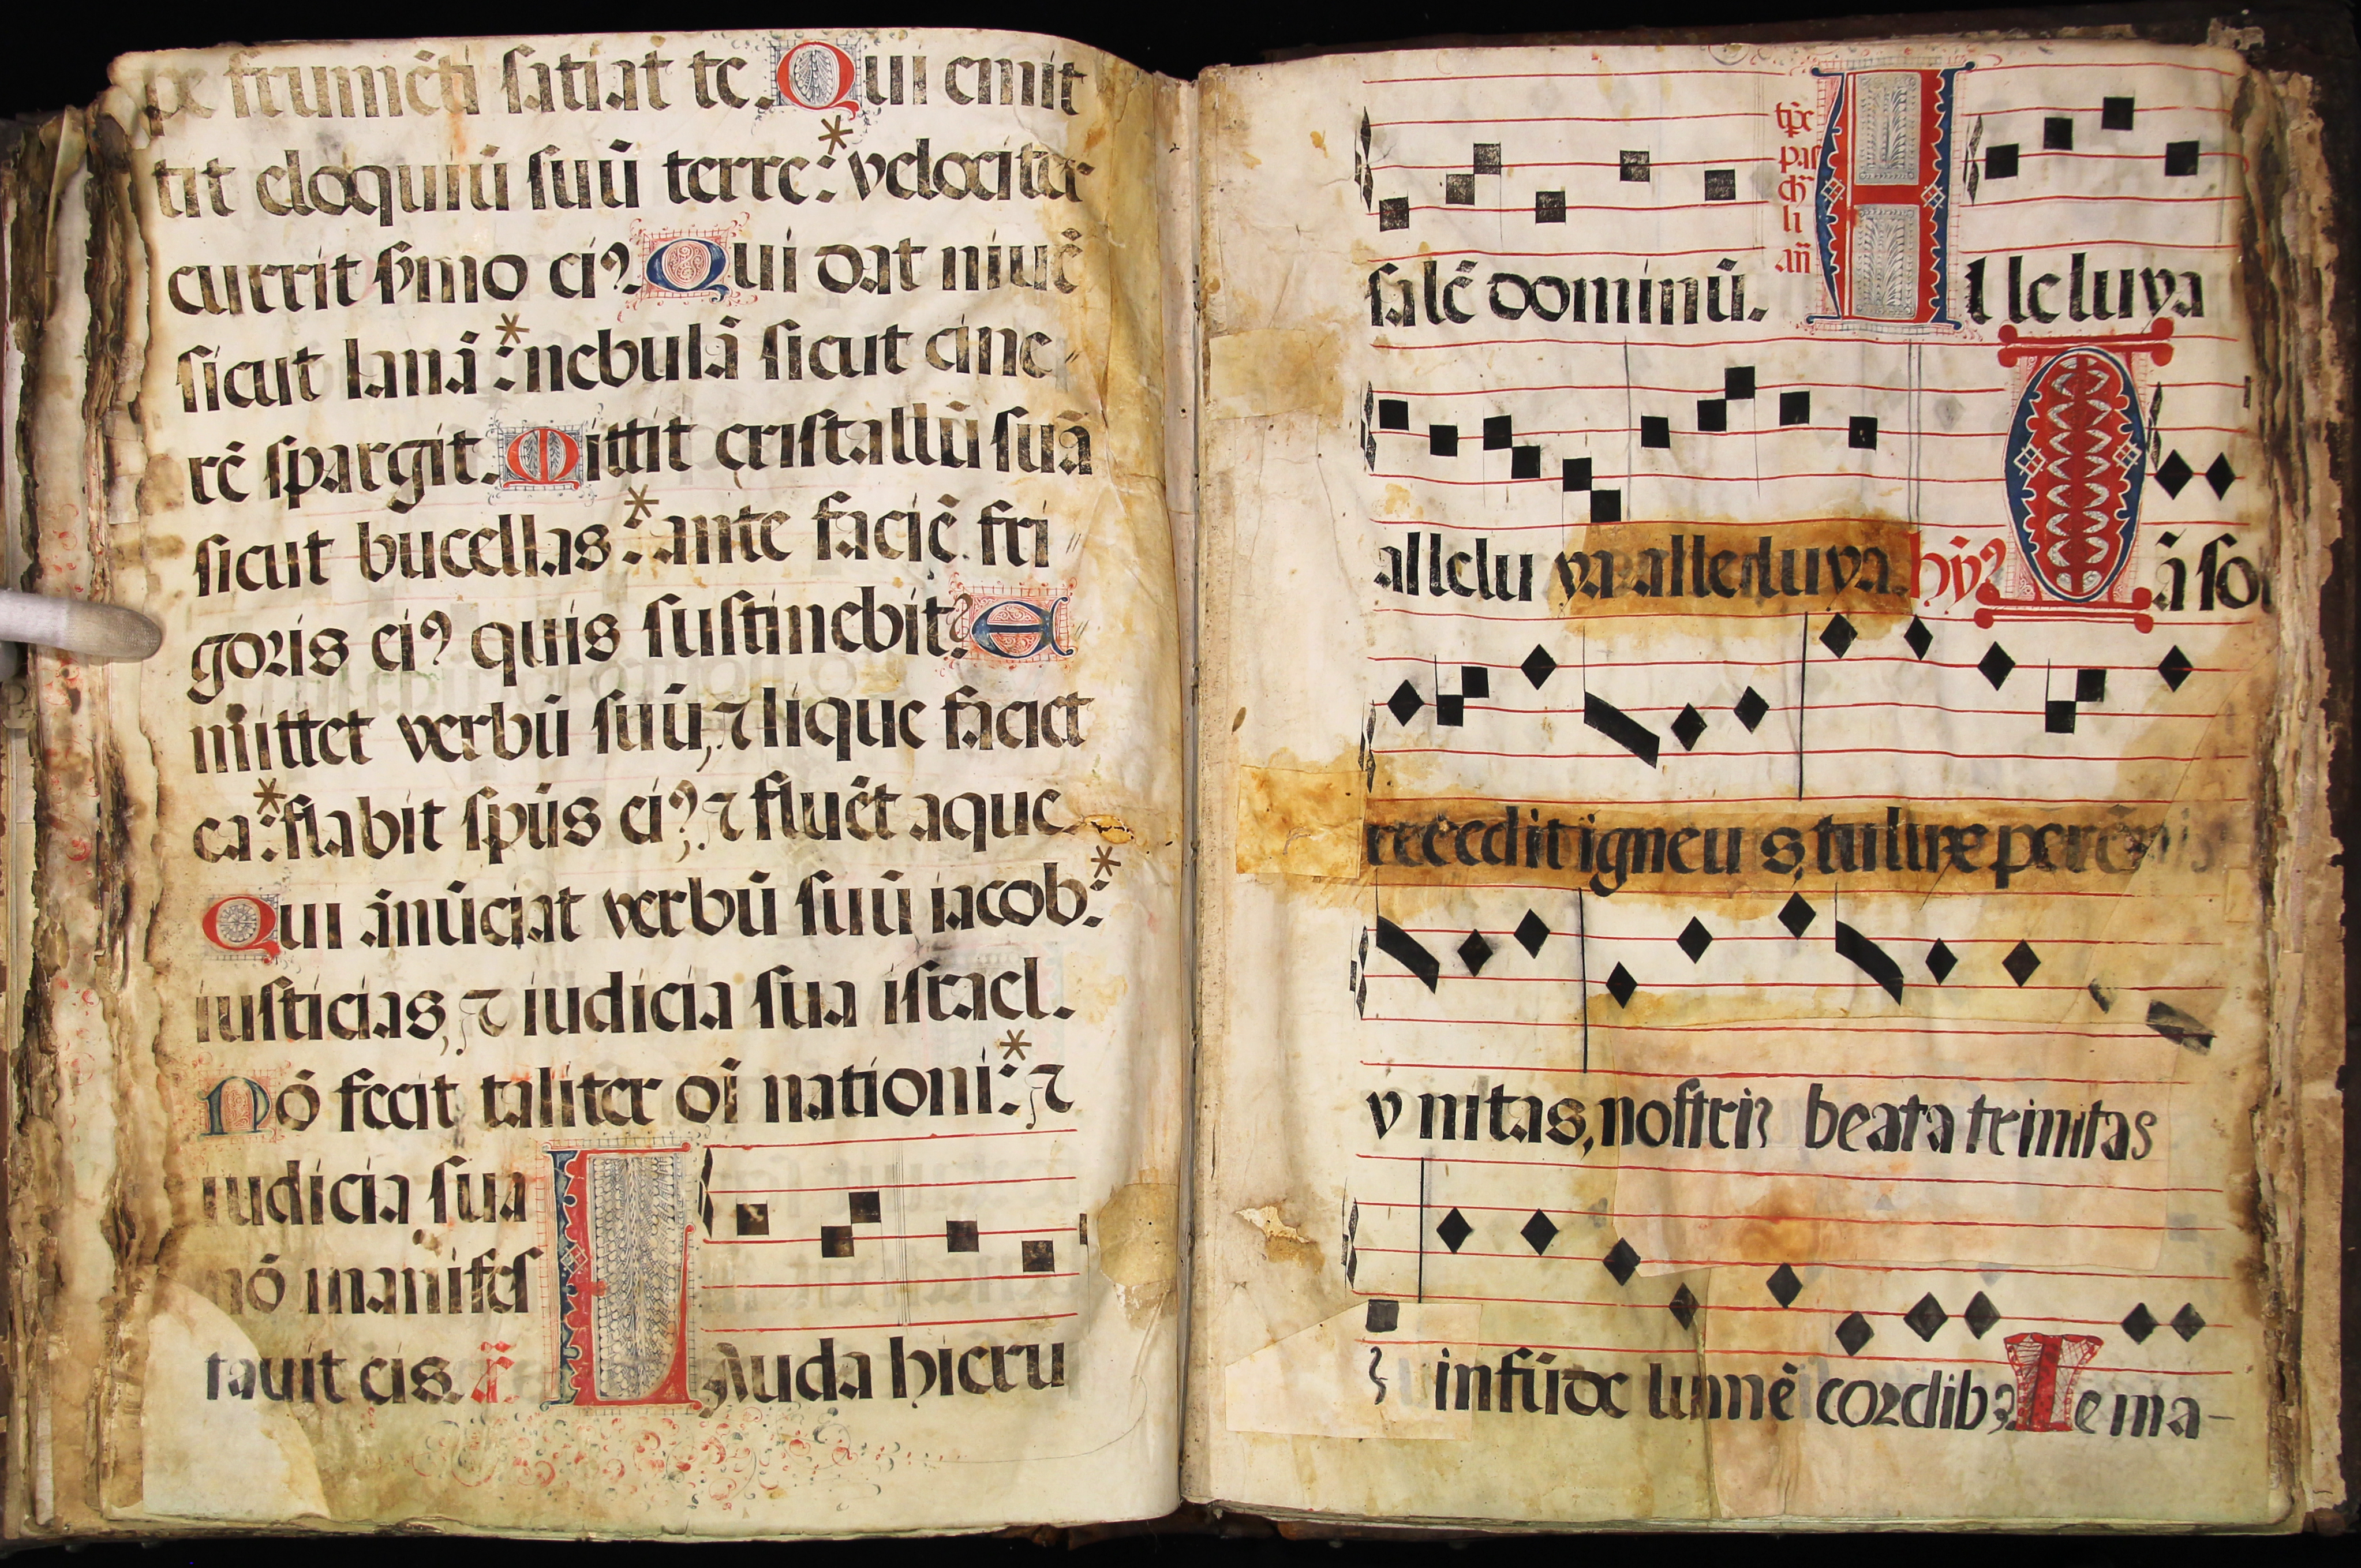 pe frumēti satiat te. Qui emit
tit eloquiū suū terre: * velociter
currit smo ei9. Qui dat niuē
sicut lanā: * nebulā sicut cine
rē spargit. Mittit cristallū suā
sicut bucellas: * ante faciē fri
goris ei9 quis sustinebit? E
mittet verbū suū, ⁊ lique faciet
ea: * flabit spūs ei9, ⁊ fluēt aque.
Qui ānūciat verbū suū iacob: *
iusticias, ⁊ iudicia sua israel.
Nō fecit taliter oī nationi: * ⁊
iudicia sua
nō manifes
tauit eis. ā. Lauda hieru
tp̄e
pas
ch
li
an̄
salē dominū. Alleluya
allelu ya alleluya. hȳ9 Iā sol
recedit igneus, tu lux perēnis
vnitas, nostri beata trinitas
infūde lumē cordib9 Te ma-